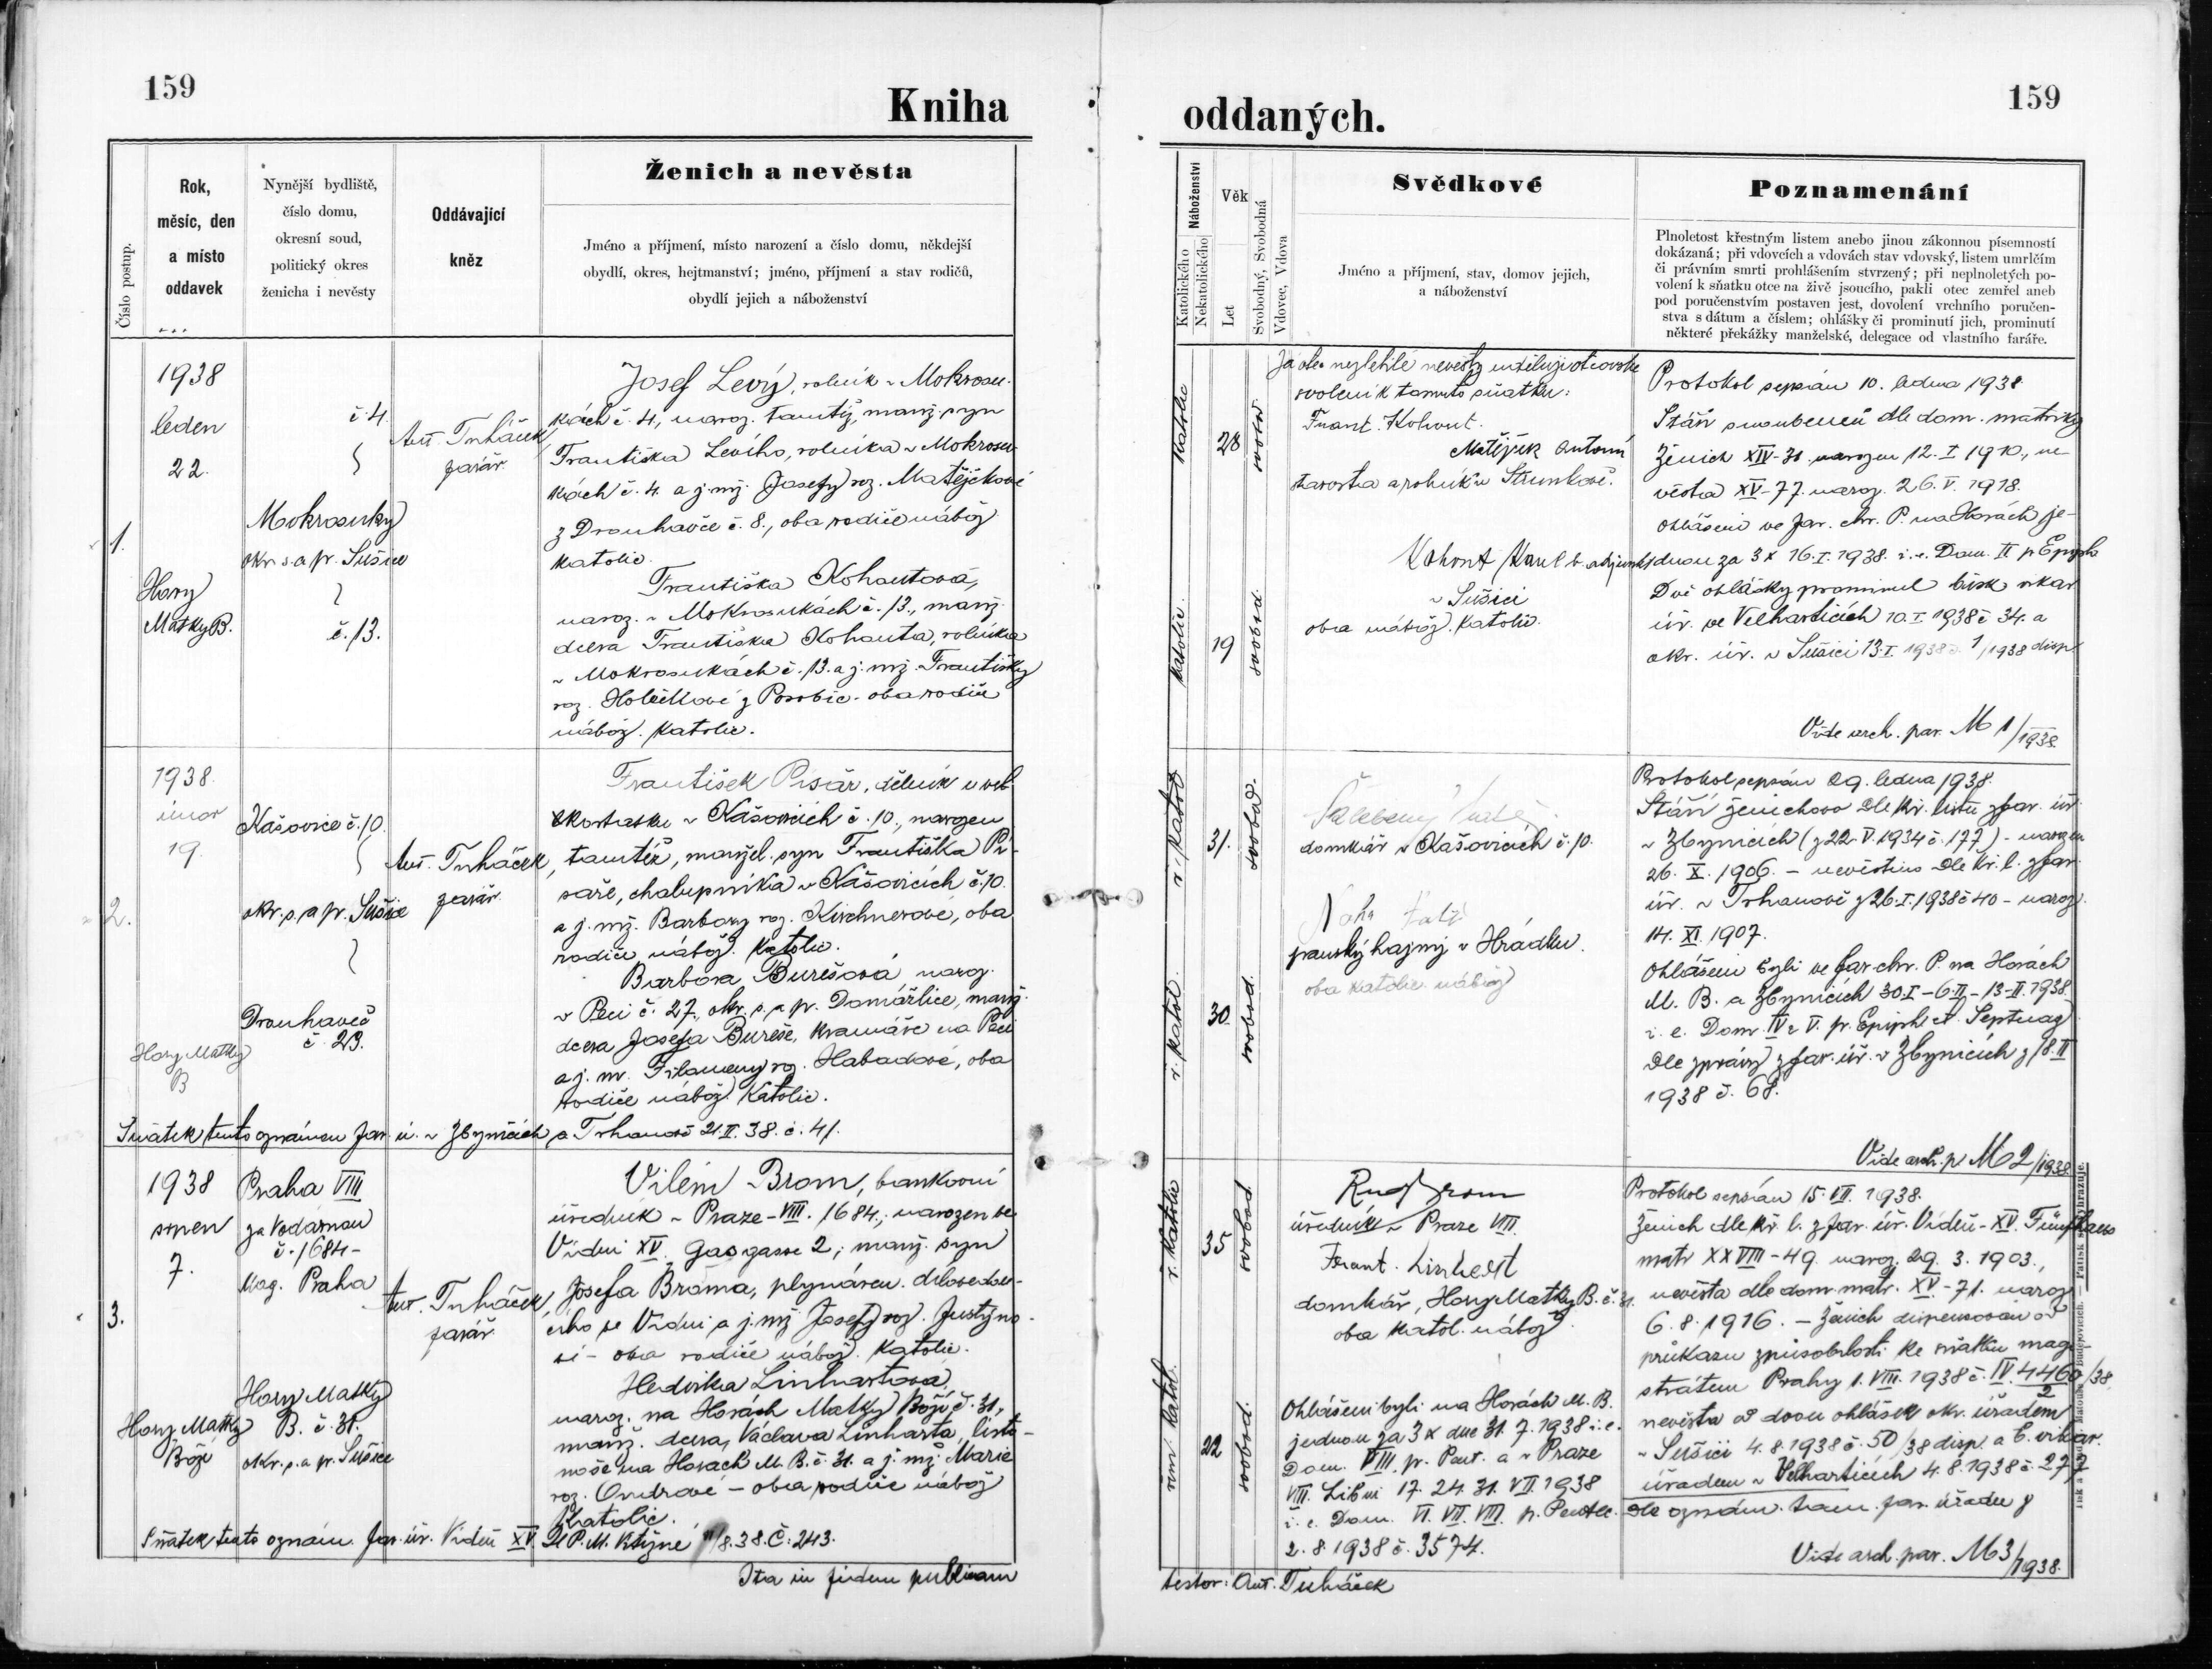 159
Kniha
Číslo postup.
Rok,
měsíc, den
a místo
oddavek
Nynější bydliště,
číslo domu,
okresní soud,
politický okres
ženicha i nevěsty
Oddávající
kněz
Ženich a nevěsta
Jméno a příjmení, místo narození a číslo domu, někdejší
obydlí, okres, hejtmanství; jméno, příjmení a stav rodičů,
obydlí jejich a náboženství
1.
1938
leden
22.
Hory
Matky B.
č. 4
Mokrosuky
okr. s. a p. Sušice
č. 13.
Ant. Tuháček,
farář
Josef Levý, rolník v Mokrosu-
kách č. 4, naroz. tamtéž, manž. syn
Františka Levího, rolníka v Mokrosu-
kách č. 4. a j. mž. Josefy roz. Matějčkové
z Drouhavče č. 8., oba rodiče nábož.
katolic.
Františka Kohoutová,
naroz. v Mokrosukách č. 13., manž.
dcera Františka Kohouta, rolníka
v Mokrosukách č. 13. a j. mž. Františky
roz. z oba rodiče
nábož. katolic.
2.
1938.
únor
19.
Hory Matky
B
Kašovice č. 10.
okr. s. a p. Sušice
Drouhaveč
č. 23.
Ant. Tuháček,
farář
František Pisař, dělník u vel-
v Kašovicích č. 10., narozen
tamtéž, manžel. syn Františka Pi-
saře, chalupníka v Kašovicích č. 10.
a j. mž. Barbory roz. Kirchnerové, oba
rodiče nábož. katolic.
Barbora Burešová, naroz.
v Peci č. 27, okr. s. a p. Domažlice, manž.
dcera Josefa Bureše, kramáře na Peci
a j. m. Filomeny roz. Habadové, oba
rodiče nábož. katolic.
Sňatek tento oznámen far. ú. v Zbynicích a Trhanově 21.II.38. č. 41.
3.
1938
srpen
7.
Hory Matky
Boží
Praha VIII
za Vodárnou
č. 1684 -
Mag. Praha
Hory Matky
B. č. 31.
okr. s. a p. Sušice
Ant. Tuháček,
farář
Vilém Brom, bankovní
úředník v Praze - VIII. 1684., narozen ve
Vídni XV. Gasgasse 2; manž. syn
Josefa Broma, plynáren. dílovedou-
cího ve Vídni a j. mž. Josefy roz.
- oba rodiče nábož. katolic.
Hedvika Linhartová,
naroz. na Horách Matky Boží č. 31.,
manž. dcera Václava Linharta, listo-
noše na Horách M. B. č. 31. a j. mž. Marie
roz. Ondrové - oba rodiče nábož
katolic.
Sňatek tento oznám. far. úř. Vídeň XV 11/8.38. Č: 243.
Ita in fidem publicam
159
oddaných.
Náboženství
Katolického
Nekatolického
Věk
Let
Svobodný, Svobodná
Vdovec, Vdova
Svědkové
Jméno a příjmení, stav, domov jejich,
a náboženství
Poznamenání
Plnoletost křestným listem anebo jinou zákonnou písemností
dokázaná; při vdovcích a vdovách stav vdovský, listem umrlčím
či právním smrti prohlášením stvrzený; při neplnoletých po-
volení k sňatku otce na živě jsoucího, pakli otec zemřel aneb
pod poručenstvím postaven jest, dovolení vrchního poručen-
stva s dátum a číslem; ohlášky či prominutí jich, prominutí
některé překážky manželské, delegace od vlastního faráře.
katolic
28
svobod.
katolic.
19
svobod.
Já otec nezletilé nevěsty uděluji otcovské
svolení k tomuto sňatku:
Frant. Kohout.
Matějček Antonín
starosta a rolník v Strunkově.
Kohout Karel
v Sušici
oba nábož. katolic.
Protokol sepsán 10. ledna 1938
Stáří snoubenců dle dom. matriky
ženich XIV-31. narozen 12. I. 1910., ne-
věsta XV-77. naroz. 26. V. 1918.
Ohlášeni ve far. chr. P. na Horách je-
dnou za 3x 16.I.1938. i. e. Dom. II p Epiph
Dvě ohlášky prominul bisk. vikar.
úř. ve Velharticích 10.I.1938 č 34. a
okr. úř. v Sušici 13.I. 1938 č. 1/1938 disp.
Vide arch. par. M 1/1938.
ř. katol
31.
svobod.
ř. katol.
30.
svobod.
domkář v Kašovicích č. 10.
panský hajný v Hrádku.
oba katolic. nábož
Protokol sepsán 29. ledna 1938.
Stáří ženichovo dle kř. listu z far. úř.
v Zbynicích (z 22.V.1934 č. 177) - narozen
26. X. 1906. - nevěstino dle kř. l. z far.
úř. v Trhanově z 26.I.1938 č 40 - naroz.
14. XI. 1907.
Ohlášeni byli ve far. chr. P. na Horách
M. B. a Zbynicích 30.I - 6.II - 13-II.1938.
i. e. Dom. IV a V. p. Epiph et Septuag
dle zprávy z far. úř. v Zbynicích z 18.II
1938 č. 68.
Vide arch. p. M 2/1938.
ř. katolic
35
svobod
řím. katol.
22
svobod.
Brom
úředník v Praze VIII.
Frant. Linhart
domkář, Hory Matky B. č. 31.
oba katol. nábož
Ohlášeni byli na Horách M. B.
jednou za 3x dne 31. 7. 1938 i. e.
Dom. VIII. p. Pent. a v Praze
VIII. Libni 17. 24. 31. VII. 1938
i. e. Dom. VI. VII. VIII. p. Pentec.
2. 8. 1938 č. 3574.
Protokol sepsán 15. VII. 1938.
Ženich dle kř. l. z far. úř. Vídeň - XV. Fünfhaus
matr XXVIII - 49. naroz. 29. 3. 1903.,
nevěsta dle dom. matr. XV - 71. naroz
6. 8. 1916. - Ženich dispensován od
průkazu způsobilosti ke sňatku magi-
strátem Prahy 1. VIII. 1938 č. IV. 4460/38,
nevěsta od dvou ohlášek okr. úřadem
v Sušici 4. 8. 1938 č. 50/38 disp. a b. vikar.
úřadem v Velharticích 4. 8. 1938 č. 277
dle oznám. tam. far. úřadu z
Vide arch. par. M 3/1938.
testor: Ant. Tuháček